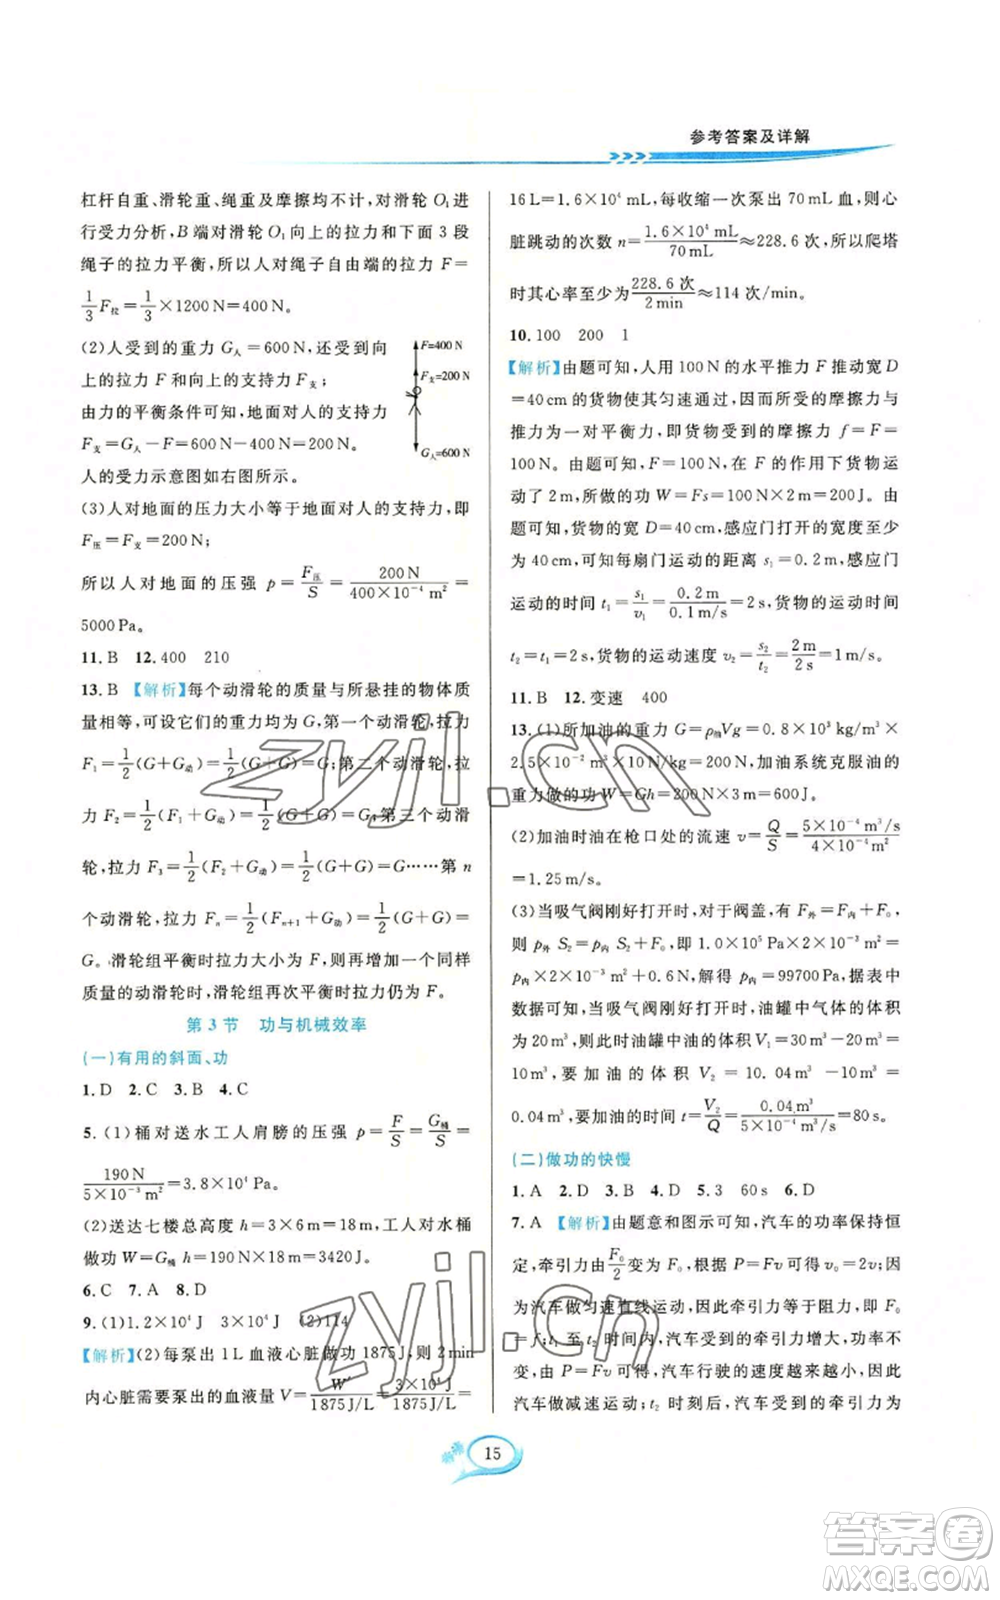 参考答案及详解
杠杆自重、滑轮重、绳重及摩擦均不计,对滑轮 O₁ 进
行受力分析,B 端对滑轮O₁ 向上的拉力和下面 3 段
绳子的拉力平衡,所以人对绳子自由端的拉力 F=
1/3 F拉=1/3×1200 N=400 N。
(2)人受到的重力 G人=600 N,还受到向
上的拉力 F 和地面对人的支持力 F支;
由力的平衡条件可知,地面对人的支持力
F支=G人-F=600 N-400 N=200 N。
人的受力示意图如右图所示。
F=400 N
F支=200 N
G人=600 N
(3)人对地面的压力大小等于地面对人的支持力,即
F压=F支=200 N;
所以人对地面的压强 p=F压/S=200 N/(400×10⁻⁴ m²)=
5000 Pa。
11. B 12. 400 210
13. B 【解析】每个动滑轮的质量与所悬挂的物体质
量相等,可设它们的重力均为 G,第一个动滑轮,拉力
F₁=1/2(G+G动)=1/2(G+G)=G;第二个动滑轮,拉
力 F₂=1/2(F₁+G动)=1/2(G+G)=G;第三个动滑
轮,拉力 F₃=1/2(F₂+G动)=1/2(G+G)=G……第 n
个动滑轮,拉力 Fₙ=1/2(Fₙ₊₁+G动)=1/2(G+G)=
G。滑轮组平衡时拉力大小为 F,则再增加一个同样
质量的动滑轮时,滑轮组再次平衡时拉力仍为 F。
第 3 节 功与机械效率
(一)有用的斜面、功
1. D 2. C 3. B 4. C
5. (1)桶对送水工人肩膀的压强 p=F/S=G桶/S=
190 N/(5×10⁻³ m²)=3.8×10⁴ Pa。
(2)送达七楼总高度 h=3×6 m=18 m,工人对水桶
做功 W=G桶 h=190 N×18 m=3420 J。
6. C 7. A 8. D
9. (1)1.2×10⁴ J 3×10⁴ J (2)114
【解析】(2)每泵出 1 L 血液心脏做功 1875 J,则 2 min
内心脏需要泵出的血液量 V=W/(1875 J/L)=3×10⁴ J/(1875 J/L)=
16 L=1.6×10⁴ mL,每收缩一次泵出 70 mL 血,则心
脏跳动的次数 n=1.6×10⁴ mL/70 mL≈228.6 次,所以爬塔
时其心率至少为228.6 次/2 min≈114 次/min。
10. 100 200 1
【解析】由题可知,人用 100 N 的水平推力 F 推动宽 D
=40 cm 的货物使其匀速通过,因而所受的摩擦力与
推力为一对平衡力,即货物受到的摩擦力 f=F=
100 N。由题可知,F=100 N,在 F 的作用下货物运
动了 2 m,所做的功 W=Fs=100 N×2 m=200 J。由
题可知,货物的宽 D=40 cm,感应门打开的宽度至少
为 40 cm,可知每扇门运动的距离 s₁=0.2 m,感应门
运动的时间 t₁=s₁/v₁=0.2 m/0.1 m/s=2 s,货物的运动时间
t₂=t₁=2 s,货物的运动速度 v₂=s₂/t₂=2 m/2 s=1 m/s。
11. B 12. 变速 400
13. (1)所加油的重力 G=ρ油Vg=0.8×10³ kg/m³×
2.5×10⁻² m³×10 N/kg=200 N,加油系统克服油的
重力做的功 W=Gh=200 N×3 m=600 J。
(2)加油时油在枪口处的流速 v=Q/S=(5×10⁻⁴ m³/s)/(4×10⁻⁴ m²)
=1.25 m/s。
(3)当吸气阀刚好打开时,对于阀盖,有 F外=F内+F,
则 p外 S₂=p内 S₂+F,即 1.0×10⁵ Pa×2×10⁻³ m²=
p内×2×10⁻³ m²+0.6 N,解得 p内=99700 Pa,据表中
数据可知,当吸气阀刚好打开时,油罐中气体的体积
为 20 m³,此时油罐中油的体积 V₁=30 m³-20 m³=
10 m³,要加油的体积 V₂=10.04 m³-10 m³=
0.04 m³,要加油的时间 t=V₂/Q=0.04 m³/(5×10⁻⁴ m³/s)=80 s。
(二)做功的快慢
1. A 2. D 3. B 4. D 5. 3 60 s 6. D
7. A 【解析】由题意和图示可知,汽车的功率保持恒
定,牵引力为F₀/2时速度为 F₀,因为 P=Fv 可知 v₀=2v;
因为汽车做匀速直线运动,因此牵引力等于阻力,即 F₀
=f;t₁ 至 t₂ 时间内,汽车受到的牵引力增大,功率不
变,由 P=Fv 可知,汽车行驶的速度越来越小,故
汽车做减速运动;t₂ 时刻后,汽车受到的牵引力为
15
zyjl.cn
zyjl.cn
答案卷
MXQE.COM